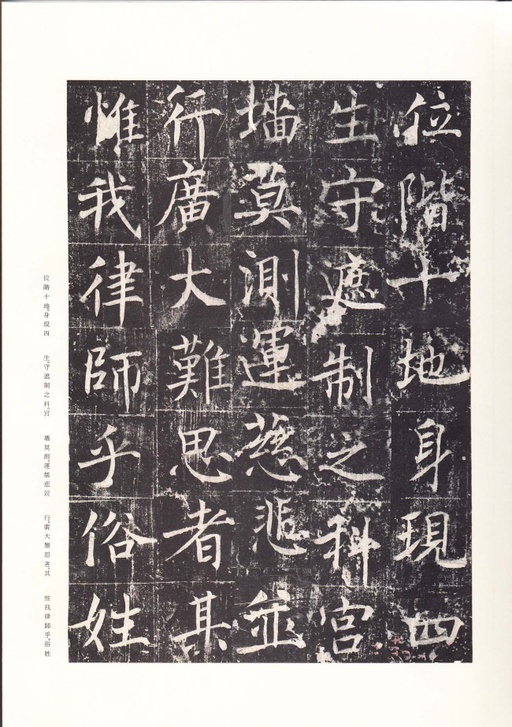 位階十地身現四
生守遮制之科宮
墻莫測運慈悲並
行廣大難思者其
惟我律師乎俗姓
位階十地身現四 生守遮制之科宮 墻莫測運慈悲並 行廣大難思者其 惟我律師乎俗姓